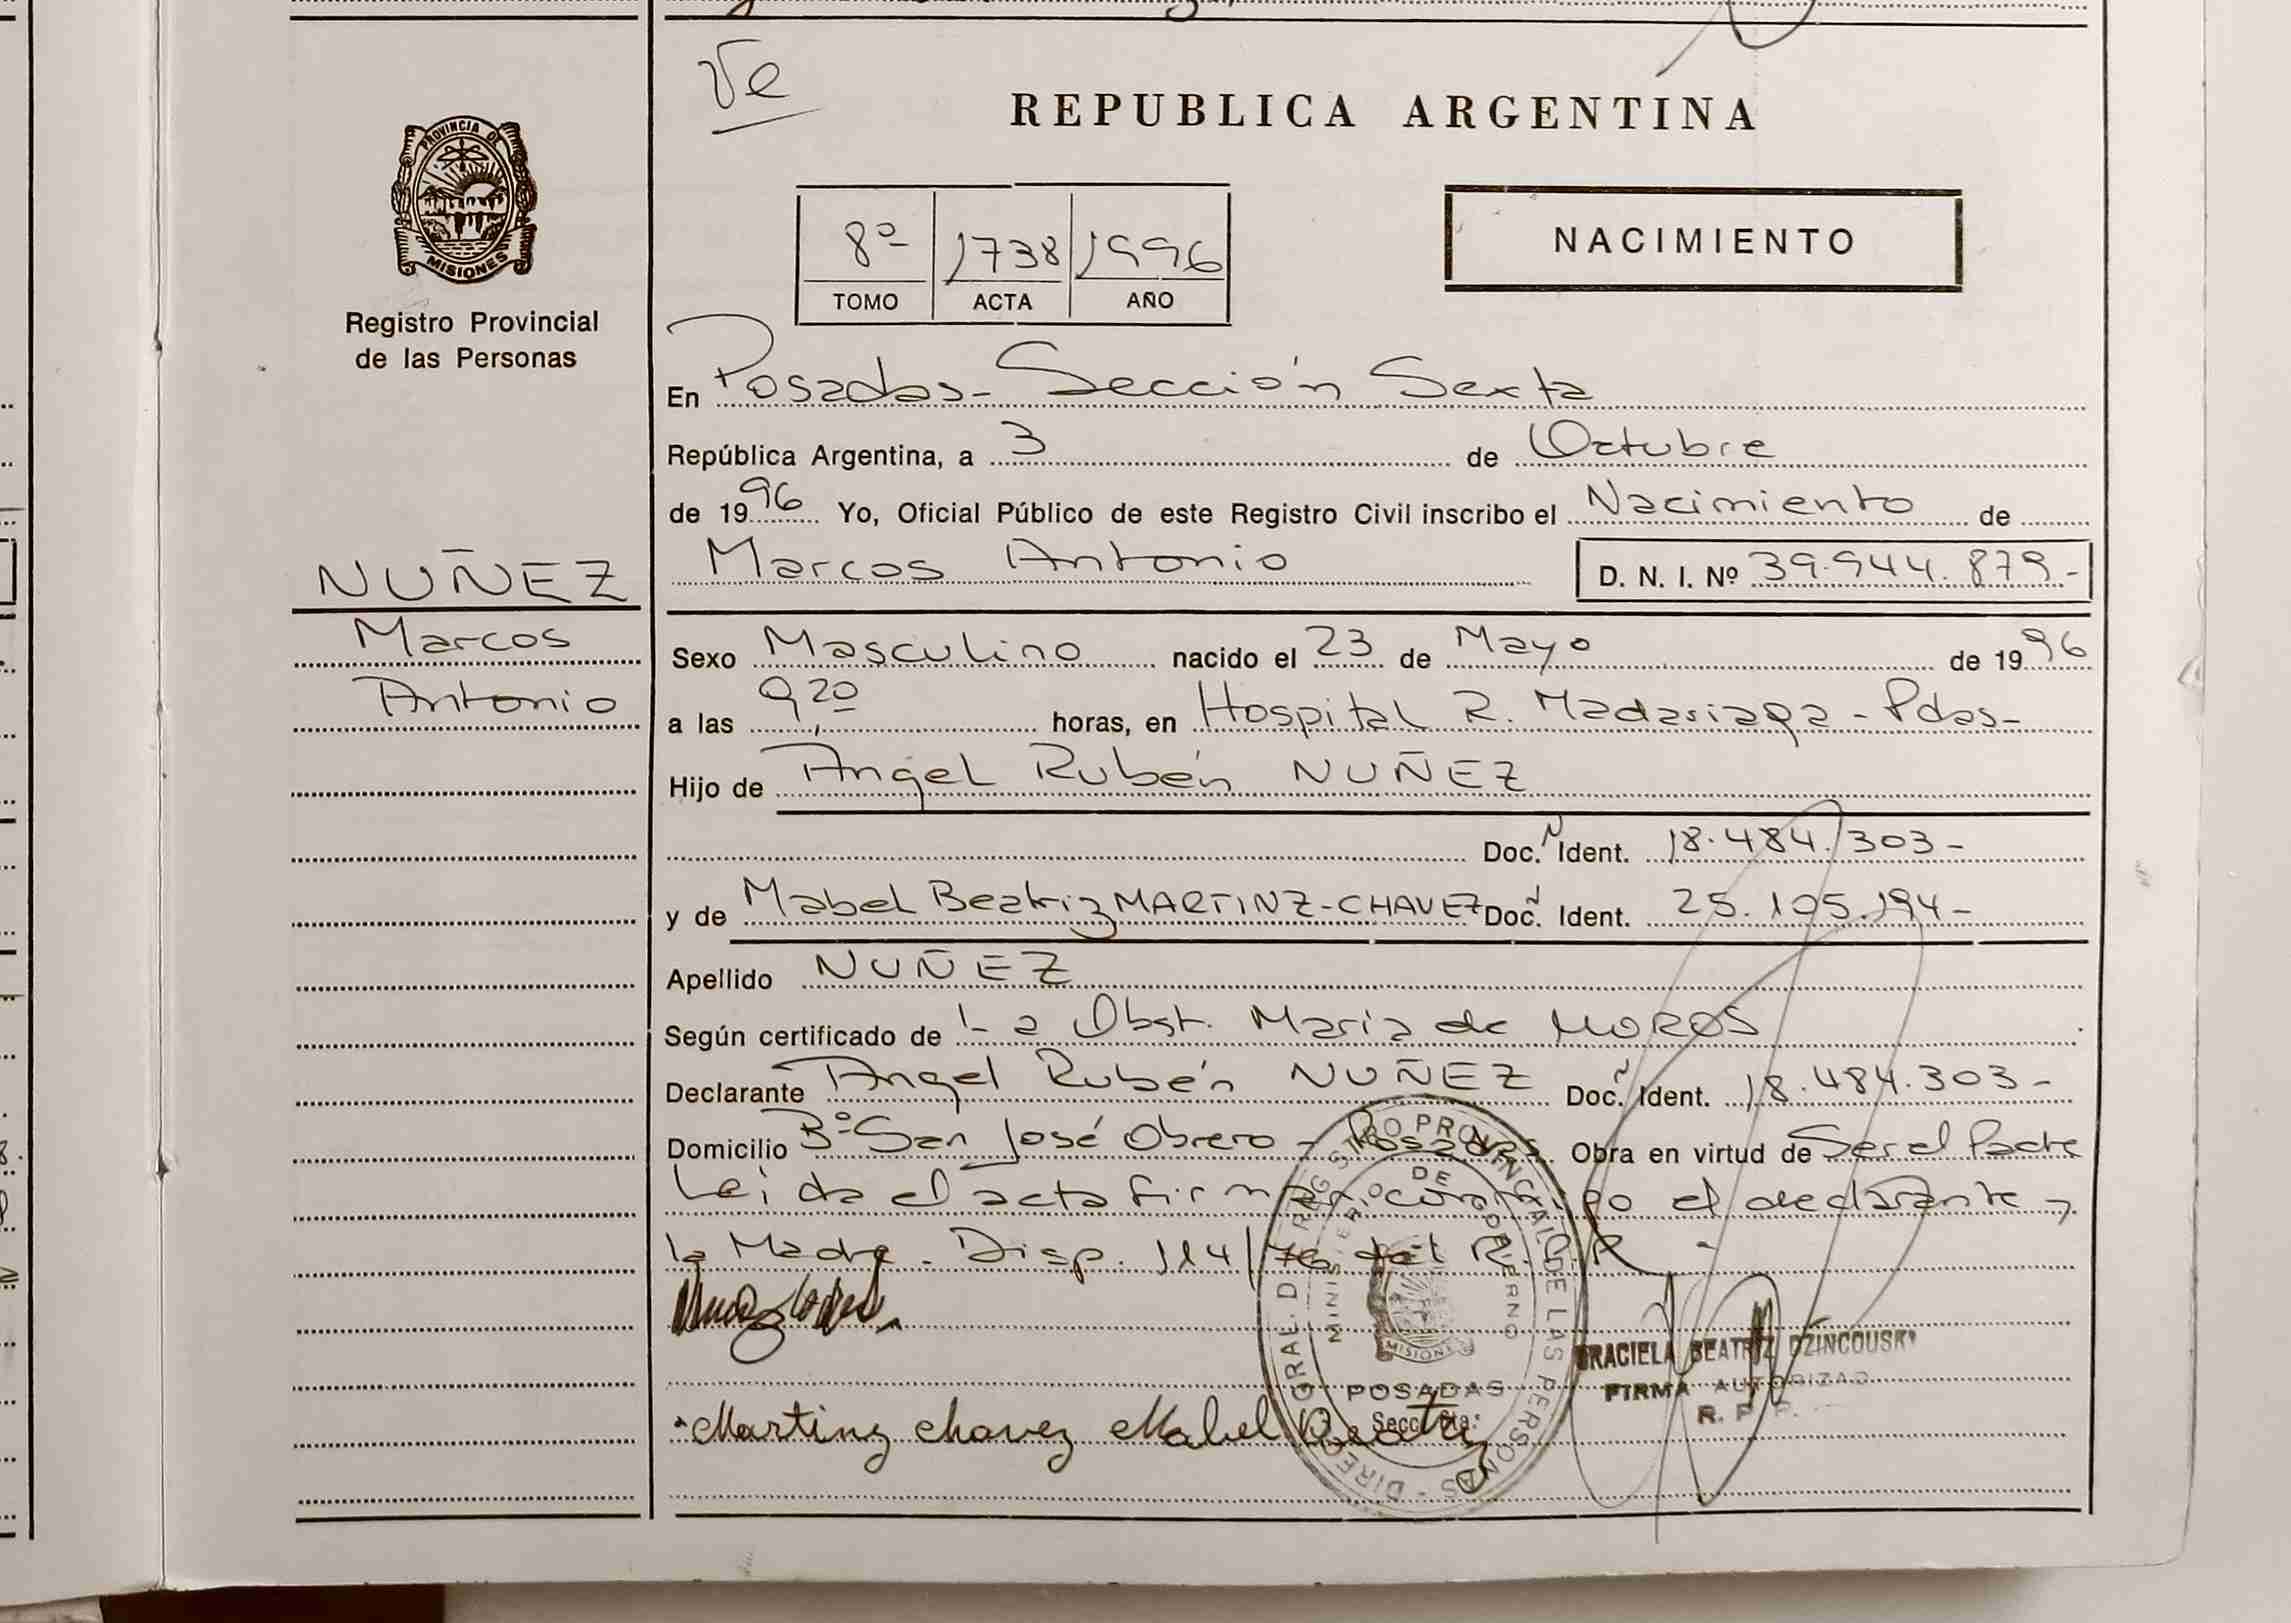 Ve
REPUBLICA ARGENTINA
PROVINCIA DE
MISIONES
Registro Provincial
de las Personas
8º 1738 1996
TOMO ACTA AÑO
NACIMIENTO
En Posadas - Sección Sexta
República Argentina, a 3 de Octubre
de 1996 Yo, Oficial Público de este Registro Civil inscribo el Nacimiento de
Marcos Antonio D. N. I. Nº 39.944.879-
NUÑEZ
Marcos
Antonio
Sexo Masculino nacido el 23 de Mayo de 1996
a las 9,20 horas, en Hospital R. Madariaga - Pdas-
Hijo de Angel Rubén NUÑEZ
Doc. N Ident. 18.484.303-
y de Mabel Beatriz MARTINZ-CHAVEZ Doc. Ident. 25.105.194-
Apellido NUÑEZ
Según certificado de La Obst. Maria de MOROS
Declarante Angel Rubén NUÑEZ Doc. Ident. 18.484.303-
Domicilio Bº San José Obrero - Posadas. Obra en virtud de Ser el Padre
Leida el acta firman conmigo el declarante y
la Madre. Disp. 114/76 del R.P.P.
DIREC. GRAL. DEL REGISTRO PROVINCIAL DE LAS PERSONAS
MINISTERIO DE GOBIERNO
MISIONES
POSADAS
Secc. 6ta.
GRACIELA BEATRIZ DZINCOUSKI
FIRMA AUTORIZAD
R. P. P.
Martinz Chavez Mabel Beatriz